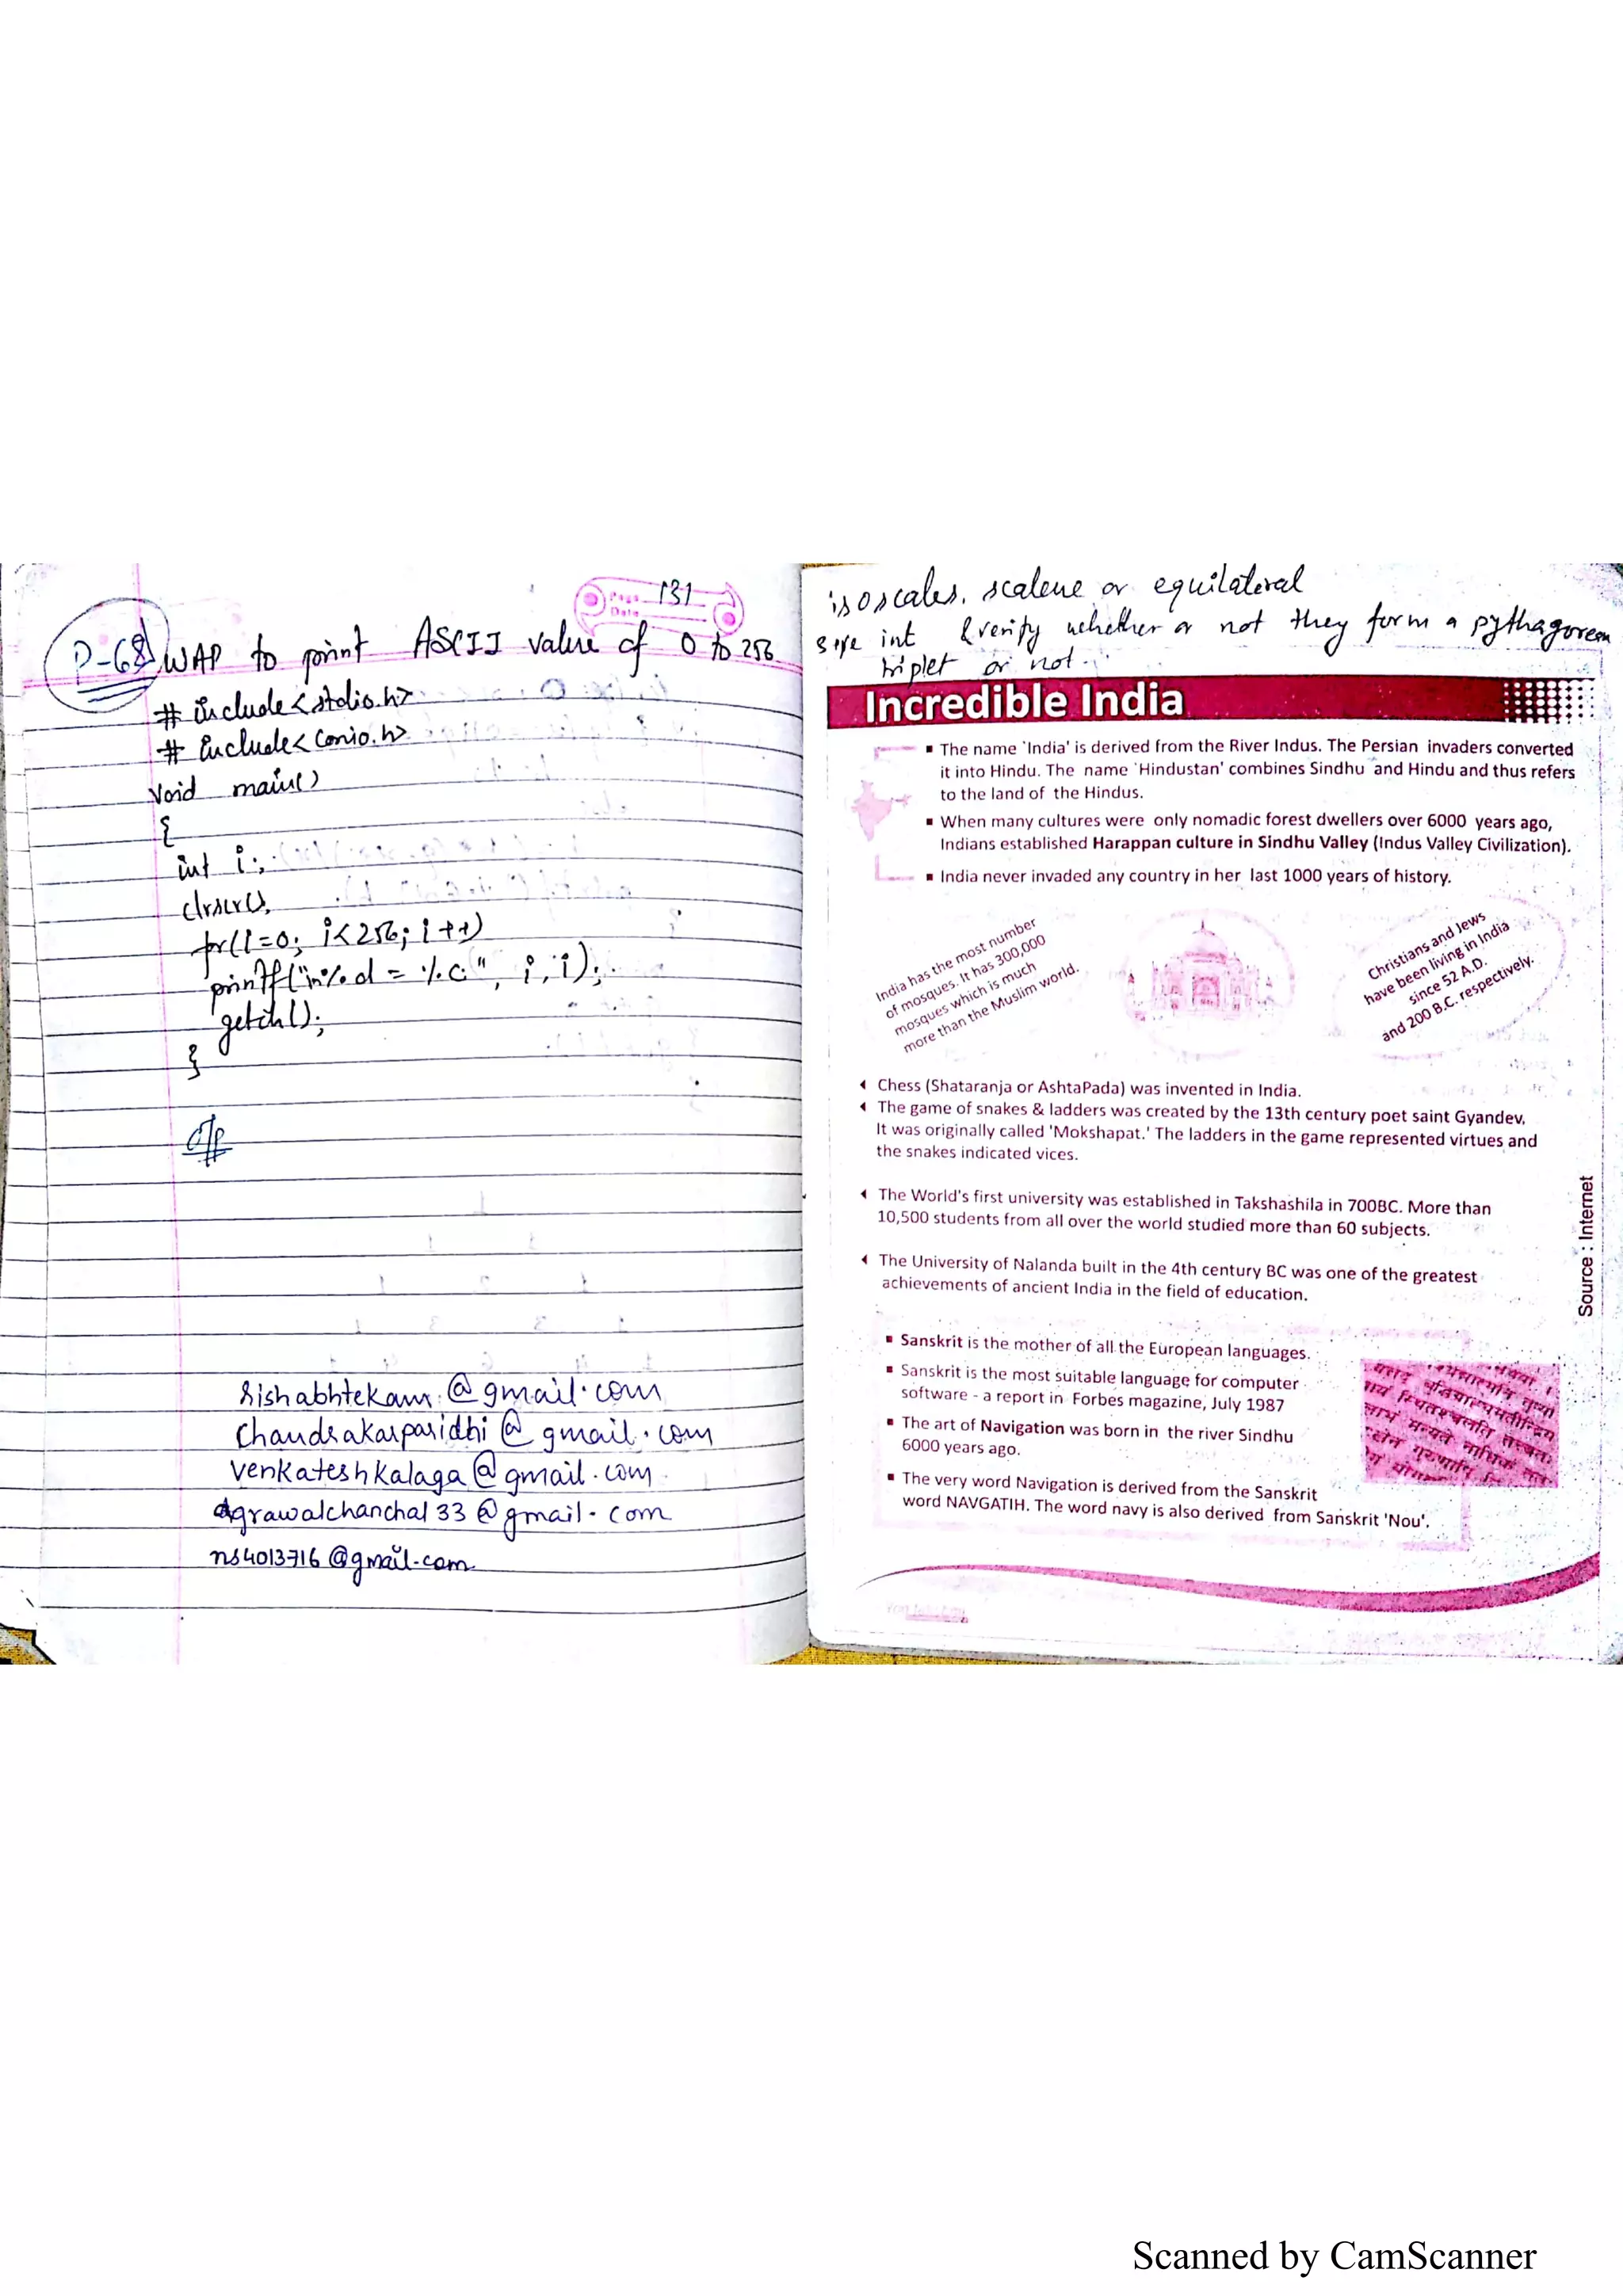 Page 131
Date
P-68 WAP to print ASCII value of 0 to 256
# include <stdio.h>
# include <conio.h>
void main()
{
int i;
clrscr();
for(i=0; i<256; i++)
printf("\n%d = %c", i, i);
getch();
}
O/P
rishabhtekam@gmail.com
chandrakarparidhi@gmail.com
venkateshkalaga@gmail.com
agrawalchanchal33@gmail.com
ns4013716@gmail.com
isoscales, scalene or equilateral
int & verify whether or not they form a pythagorean
triplet or not.
Incredible India
▪ The name 'India' is derived from the River Indus. The Persian invaders converted
it into Hindu. The name 'Hindustan' combines Sindhu and Hindu and thus refers
to the land of the Hindus.
▪ When many cultures were only nomadic forest dwellers over 6000 years ago,
Indians established Harappan culture in Sindhu Valley (Indus Valley Civilization).
▪ India never invaded any country in her last 1000 years of history.
India has the most number
of mosques. It has 300,000
mosques which is much
more than the Muslim world.
Christians and Jews
have been living in India
since 52 A.D.
and 200 B.C. respectively.
Chess (Shataranja or AshtaPada) was invented in India.
The game of snakes & ladders was created by the 13th century poet saint Gyandev.
It was originally called 'Mokshapat.' The ladders in the game represented virtues and
the snakes indicated vices.
The World's first university was established in Takshashila in 700BC. More than
10,500 students from all over the world studied more than 60 subjects.
The University of Nalanda built in the 4th century BC was one of the greatest
achievements of ancient India in the field of education.
▪ Sanskrit is the mother of all the European languages.
▪ Sanskrit is the most suitable language for computer
software - a report in Forbes magazine, July 1987
▪ The art of Navigation was born in the river Sindhu
6000 years ago.
▪ The very word Navigation is derived from the Sanskrit
word NAVGATIH. The word navy is also derived from Sanskrit 'Nou'.
Source : Internet
Scanned by CamScanner